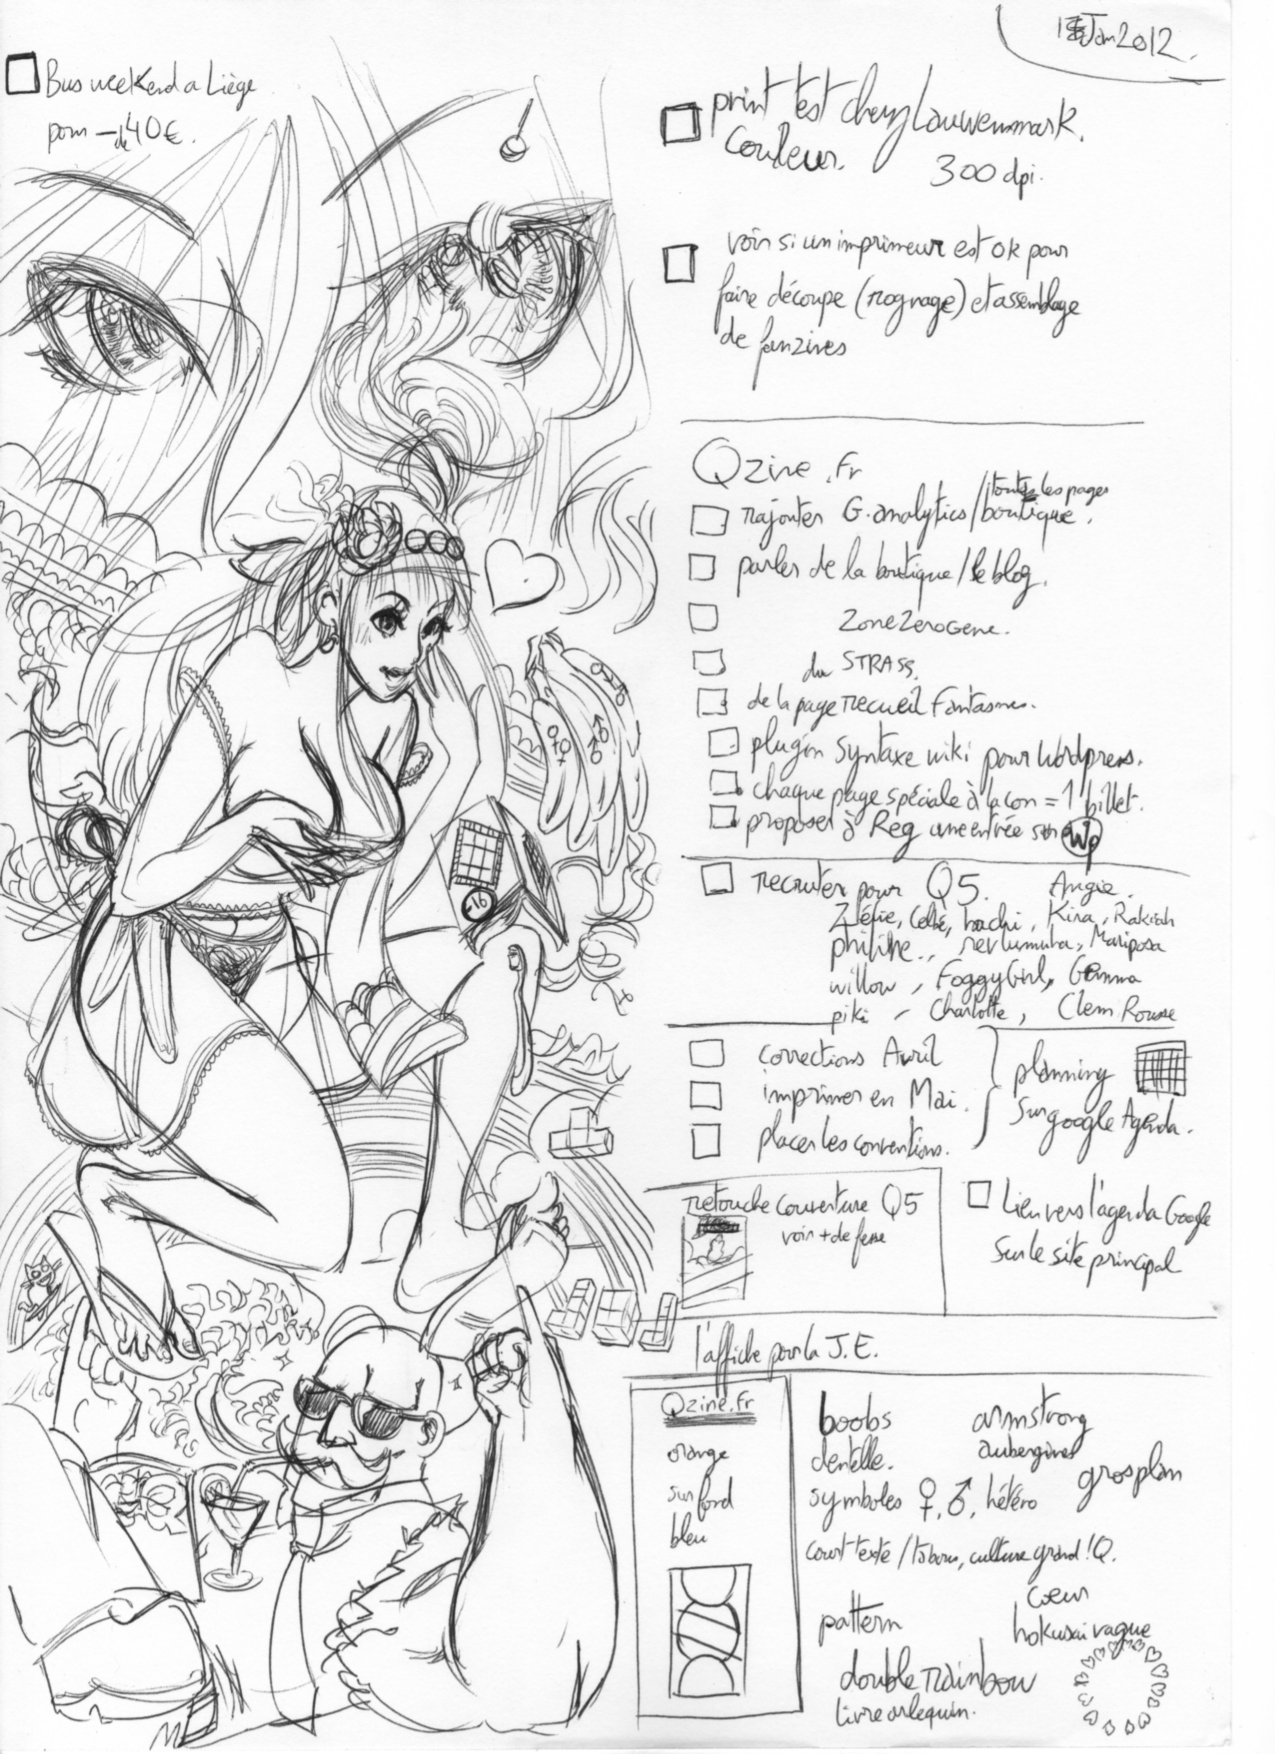 Jan 2012.
Bus weekend a Liège
pour - de 40€.
print test chez Lauwenmark.
couleur. 300 dpi.
voir si un imprimeur est ok pour
faire découpe (rognage) et assemblage
de fanzines
Qzine.fr
toutes les pages
rajouter G.analytics/boutique.
parler de la boutique/le blog.
ZoneZeroGene.
du STRASS.
de la page recueil Fantasmes.
plugin syntaxe wiki pour Wordpress.
chaque page spéciale à la con = 1 billet.
proposer à Reg une entrée sur Wp
recruter pour Q5. Angie.
hachi, Kira, Rakiah
Mariposa
willow, FoggyGirl, Gemma
piki - Charlotte, Clem Rousse
-16
corrections Avril
imprimer en Mai.
placer les conventions.
planning
sur google Agenda.
retouche couverture Q5
voir + de fesse
Lien vers l'agenda Google
sur le site principal
l'affiche pour la J.E.
Qzine.fr
orange
sur fond
bleu
boobs armstrong
dentelle. aubergines
gros plan
symboles ♀, ♂, hétéro
court texte / tabous, culture grand! Q.
coeur
pattern hokusai vague
double rainbow
livre arlequin.